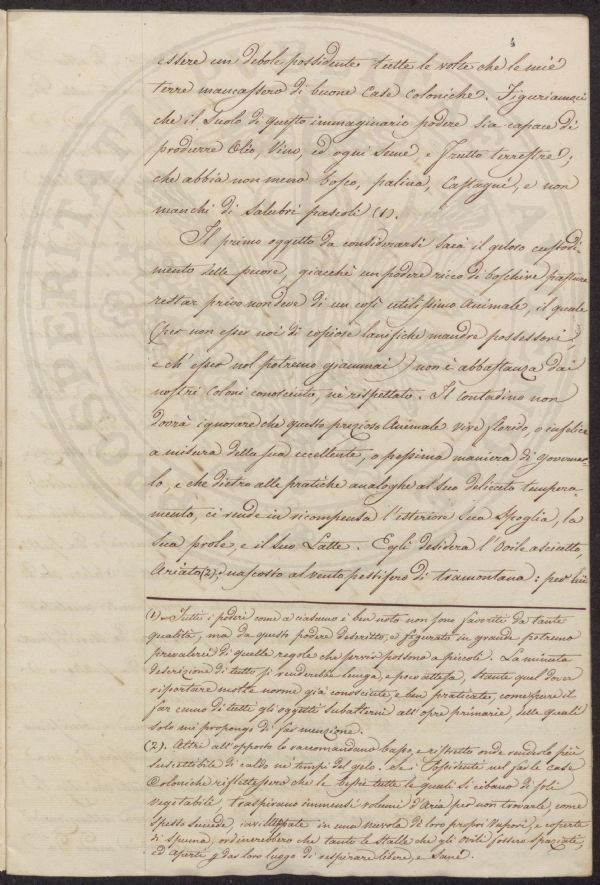 essere un debole possidente tutte le volte che le mie
terre mancassero di buone Case coloniche. Figuriamoci
che il Suolo di questo immaginario podere sia capace di
produrre Olio, Vino, ed ogni Seme, e Frutto terrestre;
che abbia non meno bosco, palina, Castagni, e non
manchi di Salubri pascoli (1).
Il primo oggetto da considerarsi sarà il geloso custodi-
mento delle pecore, giacchè un podere ricco di boschive pasture
restar privo non deve di un così utilissimo Animale, il quale
(per non esser noi di copiose lanifiche mandre possessori,
e ch'esser nol potremo giammai) non è abbastanza dai
nostri Coloni conosciuto, nè rispettato. Il contadino non
dovrà ignorare che questo prezioso Animale vive florido, o infelice
a misura della sua eccellente, o pessima maniera di governar-
lo, e che dietro alle pratiche analoghe al suo delicato tempera-
mento, ci rende in ricompensa l'esteriore sua Spoglia, la
sua prole, e il suo Latte. Egli desidera l'Ovile asciutto,
Ariato (2), nascosto al vento pestifero di tramontana: per lui
(1) Tutti i poderi come a ciascuno è ben noto non sono favoriti da tante
qualità, ma da questo podere descritto, e figurato in grande potremo
prevalerci di quelle regole che servir possono a' piccoli. La minuta
descrizione di tutto si renderebbe lunga, e poco attesa, stante qual dover
riportare molte norme già conosciute, e ben praticate, come pure il
far cenno di tutti gli oggetti subalterni all'opre primarie, delle quali
solo mi propongo di far menzione.
(2). Altri all'opposto lo raccomandano basso, e ristretto onde renderlo più
suscettibile di caldo ne' tempi del gelo. Se i Possidenti nel far le case
Coloniche riflettessero che le bestie tutte le quali si cibano di soli
vegetabili, traspirano immensi volumi d'Aria per non trovarle, come
spesso succede inviluppate in una nuvola di loro propri Vapori, e coperte
di Spuma, ordinerebbero che tanto le Stalle che gli Ovili fossero spaziati,
ed aperti p. das loro luogo di respirare libere, e Sane.
PROSPERITATI